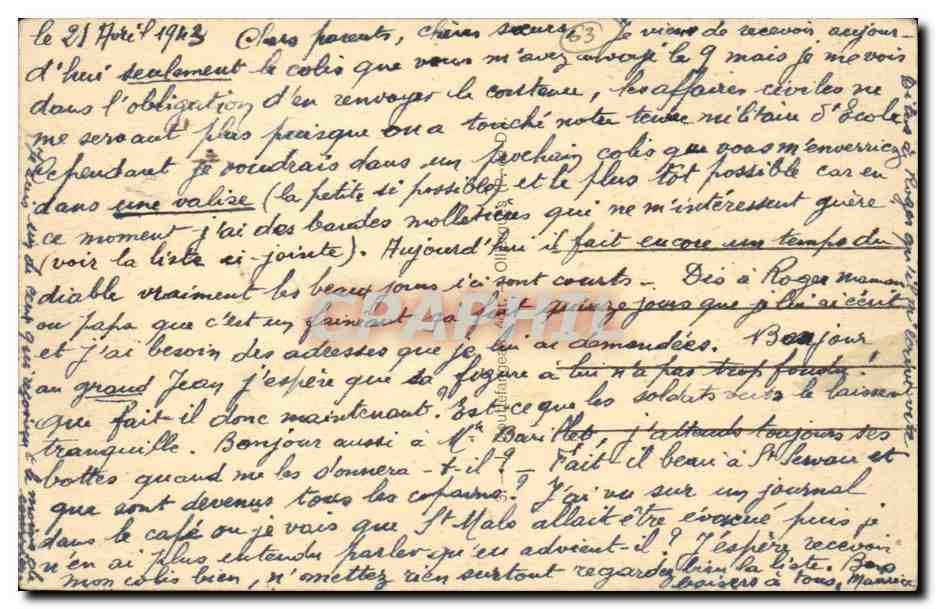 le 21 Avril 1943 Chers parents, chères soeurs, 63 Je viens de recevoir aujour-
d'hui seulement le colis que vous m'avez envoyé le 9 mais je me vois
dans l'obligation d'en renvoyer le contenu, les affaires civiles ne
me servant plus puisque on a touché notre tenue militaire d'École
Cependant je voudrais dans un prochain colis que vous m'enverriez
dans une valise (la petite si possible) et le plus tôt possible car en
ce moment j'ai des bandes molletières qui ne m'intéressent guère
(voir la liste ci-jointe). Aujourd'hui il fait encore un temps du
diable vraiment les beaux jours ici sont courts - Dis à Roger maman
ou Papa que c'est un fainéant ça fait quinze jours que je lui ai écrit
et j'ai besoin des adresses que je lui ai demandées. Bonjour
au grand Jean j'espère que sa figure à lui n'a pas trop fondu!
que fait-il donc maintenant? Est-ce que les soldats le laissent
tranquille. Bonjour aussi à Barillet, j'attends toujours ses
bottes quand me les donnera-t-il? - Fait-il beau à St Servan et
que sont devenus tous les copains? J'ai vu sur un journal
dans le café où je vais que St Malo allait être évacué puis je
n'en ai plus entendu parler qu'en advient-il? J'espère recevoir
mon colis bien, n'omettez rien surtout regardez bien la liste. Bons
baisers à tous, Maurice
Dites à Roger qu'il m'écrive vite
CARAPHIL